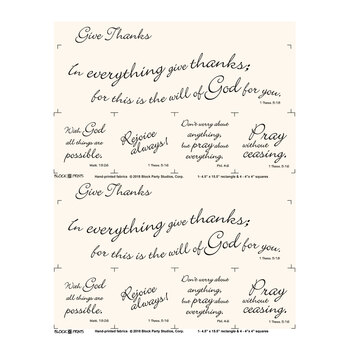 Give Thanks
In everything give thanks;
for this is the will of God for you.
1 Thess. 5:18
With God
all things are
possible.
Matt. 19:26
Rejoice
always!
1 Thess. 5:16
Don't worry about
anything,
but pray about
everything.
Phil. 4:6
Pray
without
ceasing.
1 Thess. 5:17
Hand-printed fabrics © 2018 Block Party Studios, Corp. 1- 4.5" x 15.5" rectangle & 4 - 4"x 4" squares
Give Thanks
In everything give thanks;
for this is the will of God for you.
1 Thess. 5:18
With God
all things are
possible.
Matt. 19:26
Rejoice
always!
1 Thess. 5:16
Don't worry about
anything,
but pray about
everything.
Phil. 4:6
Pray
without
ceasing.
1 Thess. 5:17
Hand-printed fabrics © 2018 Block Party Studios, Corp. 1- 4.5" x 15.5" rectangle & 4 - 4"x 4" squares